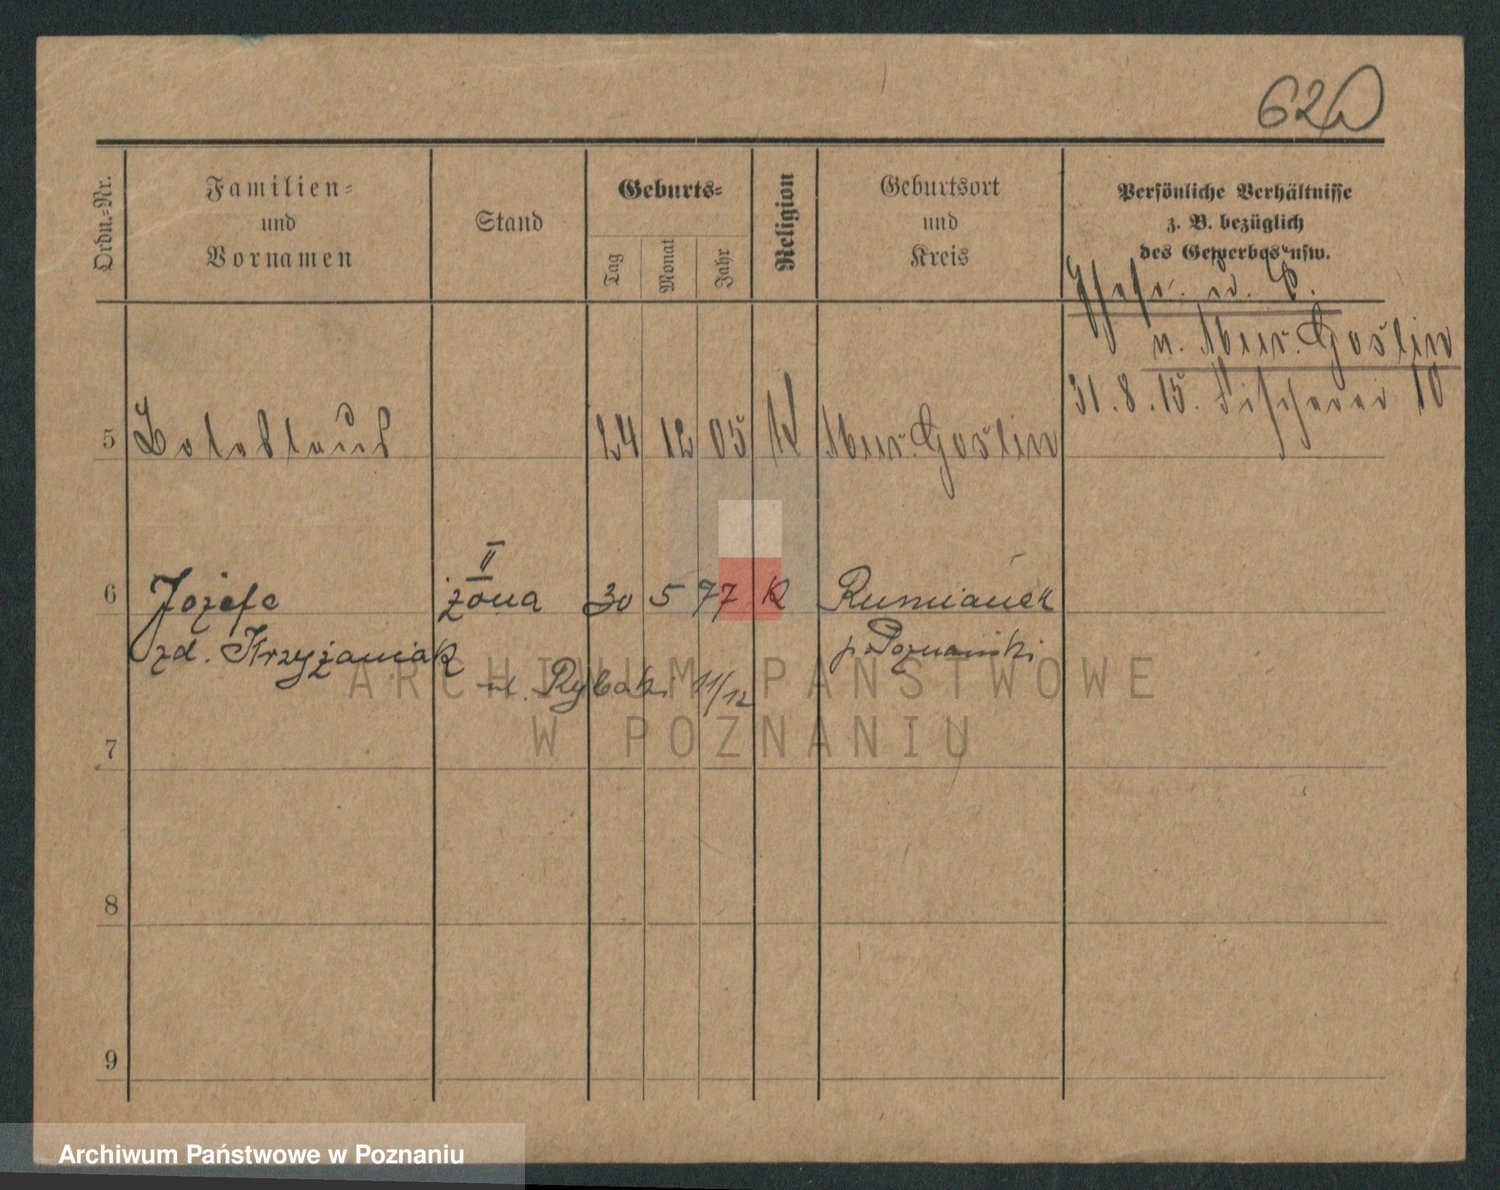 62
Ordn.-Nr.
Familien-
und
Vornamen
Stand
Geburts-
Tag
Monat
Jahr
Religion
Geburtsort
und
Kreis
Persönliche Verhältnisse
z. B. bezüglich
des Gewerbes usw.
n. Mur. Goslin
31. 8. 15. Fischerei 10
5 24 12 05 K Mur. Goslin
6 Józefa II żona 30 5 77 K Rumianek
zd. Krzyżaniak p. Poznański
ul. Rybaki 11/12
7
8
9
ARCHIWUM PAŃSTWOWE
W POZNANIU
Archiwum Państwowe w Poznaniu